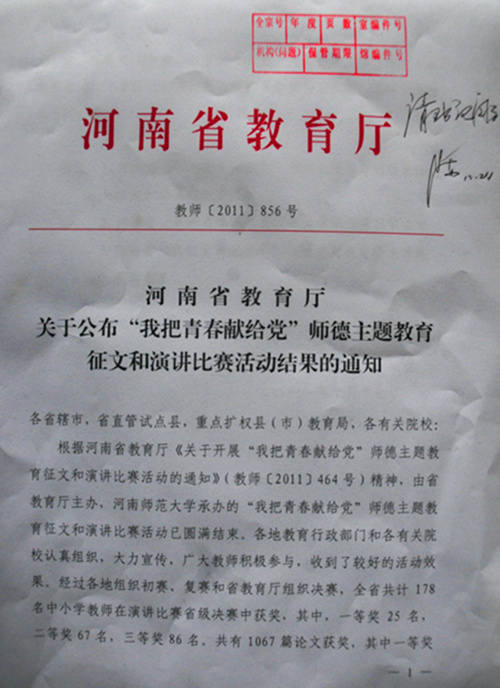 全宗号 年度 页数 室编件号
机构(问题) 保管期限 馆编件号
河南省教育厅
教师〔2011〕856号
河南省教育厅
关于公布“我把青春献给党”师德主题教育
征文和演讲比赛活动结果的通知
各省辖市，省直管试点县，重点扩权县（市）教育局，各有关院校：
根据河南省教育厅《关于开展“我把青春献给党”师德主题教
育征文和演讲比赛活动的通知》（教师〔2011〕464号）精神，由省
教育厅主办，河南师范大学承办的“我把青春献给党”师德主题教
育征文和演讲比赛活动已圆满结束。各地教育行政部门和各有关院
校认真组织，大力宣传，广大教师积极参与，收到了较好的活动效
果。经过各地组织初赛、复赛和省教育厅组织决赛，全省共计178
名中小学教师在演讲比赛省级决赛中获奖，其中，一等奖25名，
二等奖67名，三等奖86名。共有1067篇论文获奖，其中一等奖
— 1 —